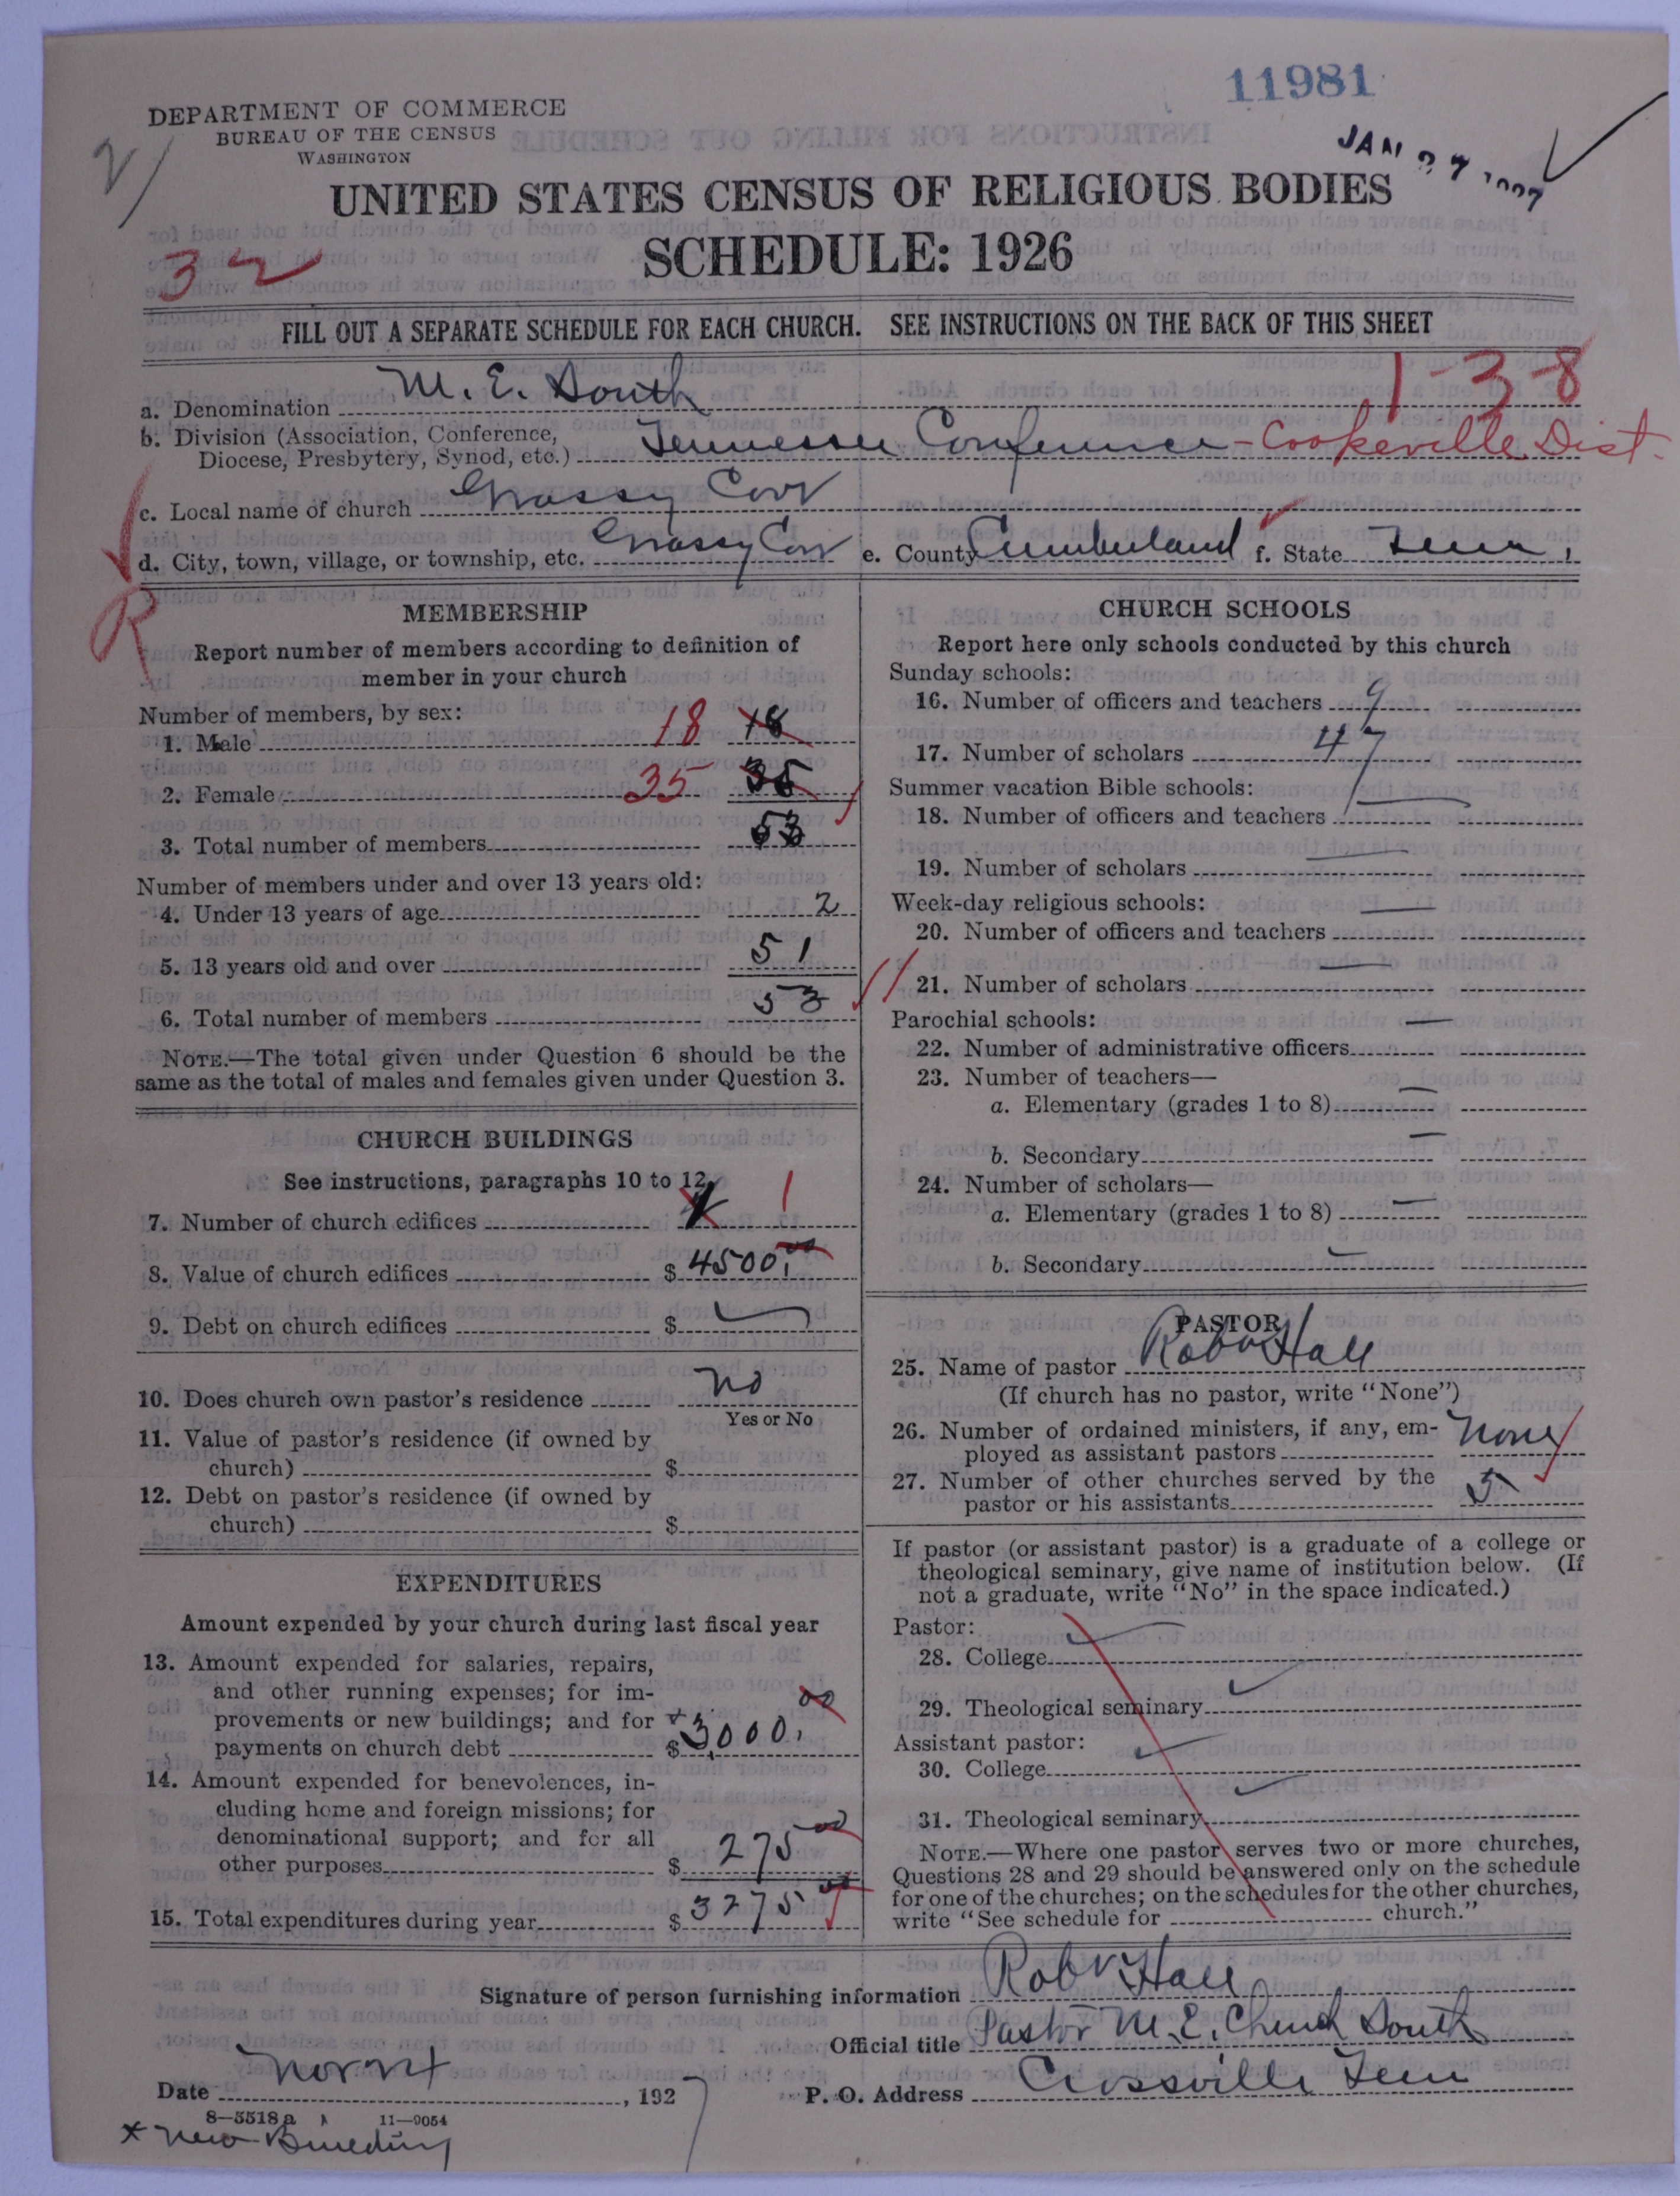 11981
DEPARTMENT OF COMMERCE
BUREAU OF THE CENSUS
WASHINGTON
JAN 27 1927
UNITED STATES CENSUS OF RELIGIOUS BODIES
SCHEDULE: 1926
32
FILL OUT A SEPARATE SCHEDULE FOR EACH CHURCH. SEE INSTRUCTIONS ON THE BACK OF THIS SHEET
1-3-8
a. Denomination M. E. South
b. Division (Association, Conference,
Diocese, Presbytery, Synod, etc.) Tennessee Conference - Cookeville Dist.
c. Local name of church Grassy Cove
d. City, town, village, or township, etc. Grassy Cove e. County Cumberland f. State Tenn.
R
MEMBERSHIP
Report number of members according to definition of
member in your church
Number of members, by sex:
1. Male 18 18
2. Female 35 35
3. Total number of members 53
Number of members under and over 13 years old:
4. Under 13 years of age 2
5. 13 years old and over 51
6. Total number of members 53
NOTE.—The total given under Question 6 should be the
same as the total of males and females given under Question 3.
CHURCH BUILDINGS
See instructions, paragraphs 10 to 12
7. Number of church edifices 1
8. Value of church edifices $ 4500.00
9. Debt on church edifices $ —
10. Does church own pastor's residence no
Yes or No
11. Value of pastor's residence (if owned by
church) $
12. Debt on pastor's residence (if owned by
church) $
EXPENDITURES
Amount expended by your church during last fiscal year
13. Amount expended for salaries, repairs,
and other running expenses; for im-
provements or new buildings; and for
payments on church debt $ x 3,000.00
14. Amount expended for benevolences, in-
cluding home and foreign missions; for
denominational support; and for all
other purposes $ 275 00
15. Total expenditures during year $ 3275 00
CHURCH SCHOOLS
Report here only schools conducted by this church
Sunday schools:
16. Number of officers and teachers 9
17. Number of scholars 47
Summer vacation Bible schools:
18. Number of officers and teachers —
19. Number of scholars —
Week-day religious schools:
20. Number of officers and teachers —
21. Number of scholars —
Parochial schools:
22. Number of administrative officers —
23. Number of teachers—
a. Elementary (grades 1 to 8) —
b. Secondary —
24. Number of scholars—
a. Elementary (grades 1 to 8) —
b. Secondary —
PASTOR
25. Name of pastor Robt Hall
(If church has no pastor, write "None")
26. Number of ordained ministers, if any, em-
ployed as assistant pastors none
27. Number of other churches served by the
pastor or his assistants 5
If pastor (or assistant pastor) is a graduate of a college or
theological seminary, give name of institution below. (If
not a graduate, write "No" in the space indicated.)
Pastor:
28. College
29. Theological seminary
Assistant pastor:
30. College
31. Theological seminary
NOTE.—Where one pastor serves two or more churches,
Questions 28 and 29 should be answered only on the schedule
for one of the churches; on the schedules for the other churches,
write "See schedule for church."
Signature of person furnishing information Robt Hall
Official title Pastor M. E. Church South
Date , 1927 P. O. Address Crossville Tenn
8—5518a 11—9054
x New Building